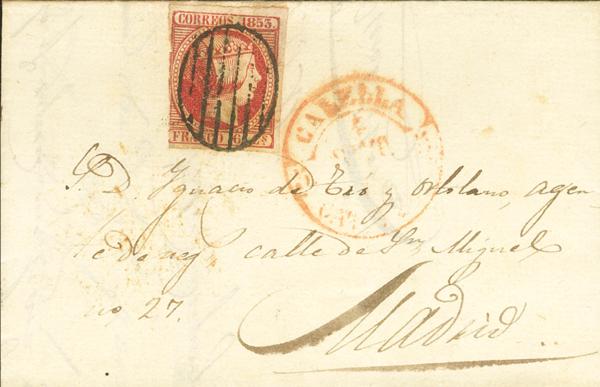 CORREOS 1853.
FRANCO 6 Cs
CALELLA
S. D. Ignacio de Tro y Molano, agen-
te de neg. calle de Sn. Miguel
no 27.
Madrid